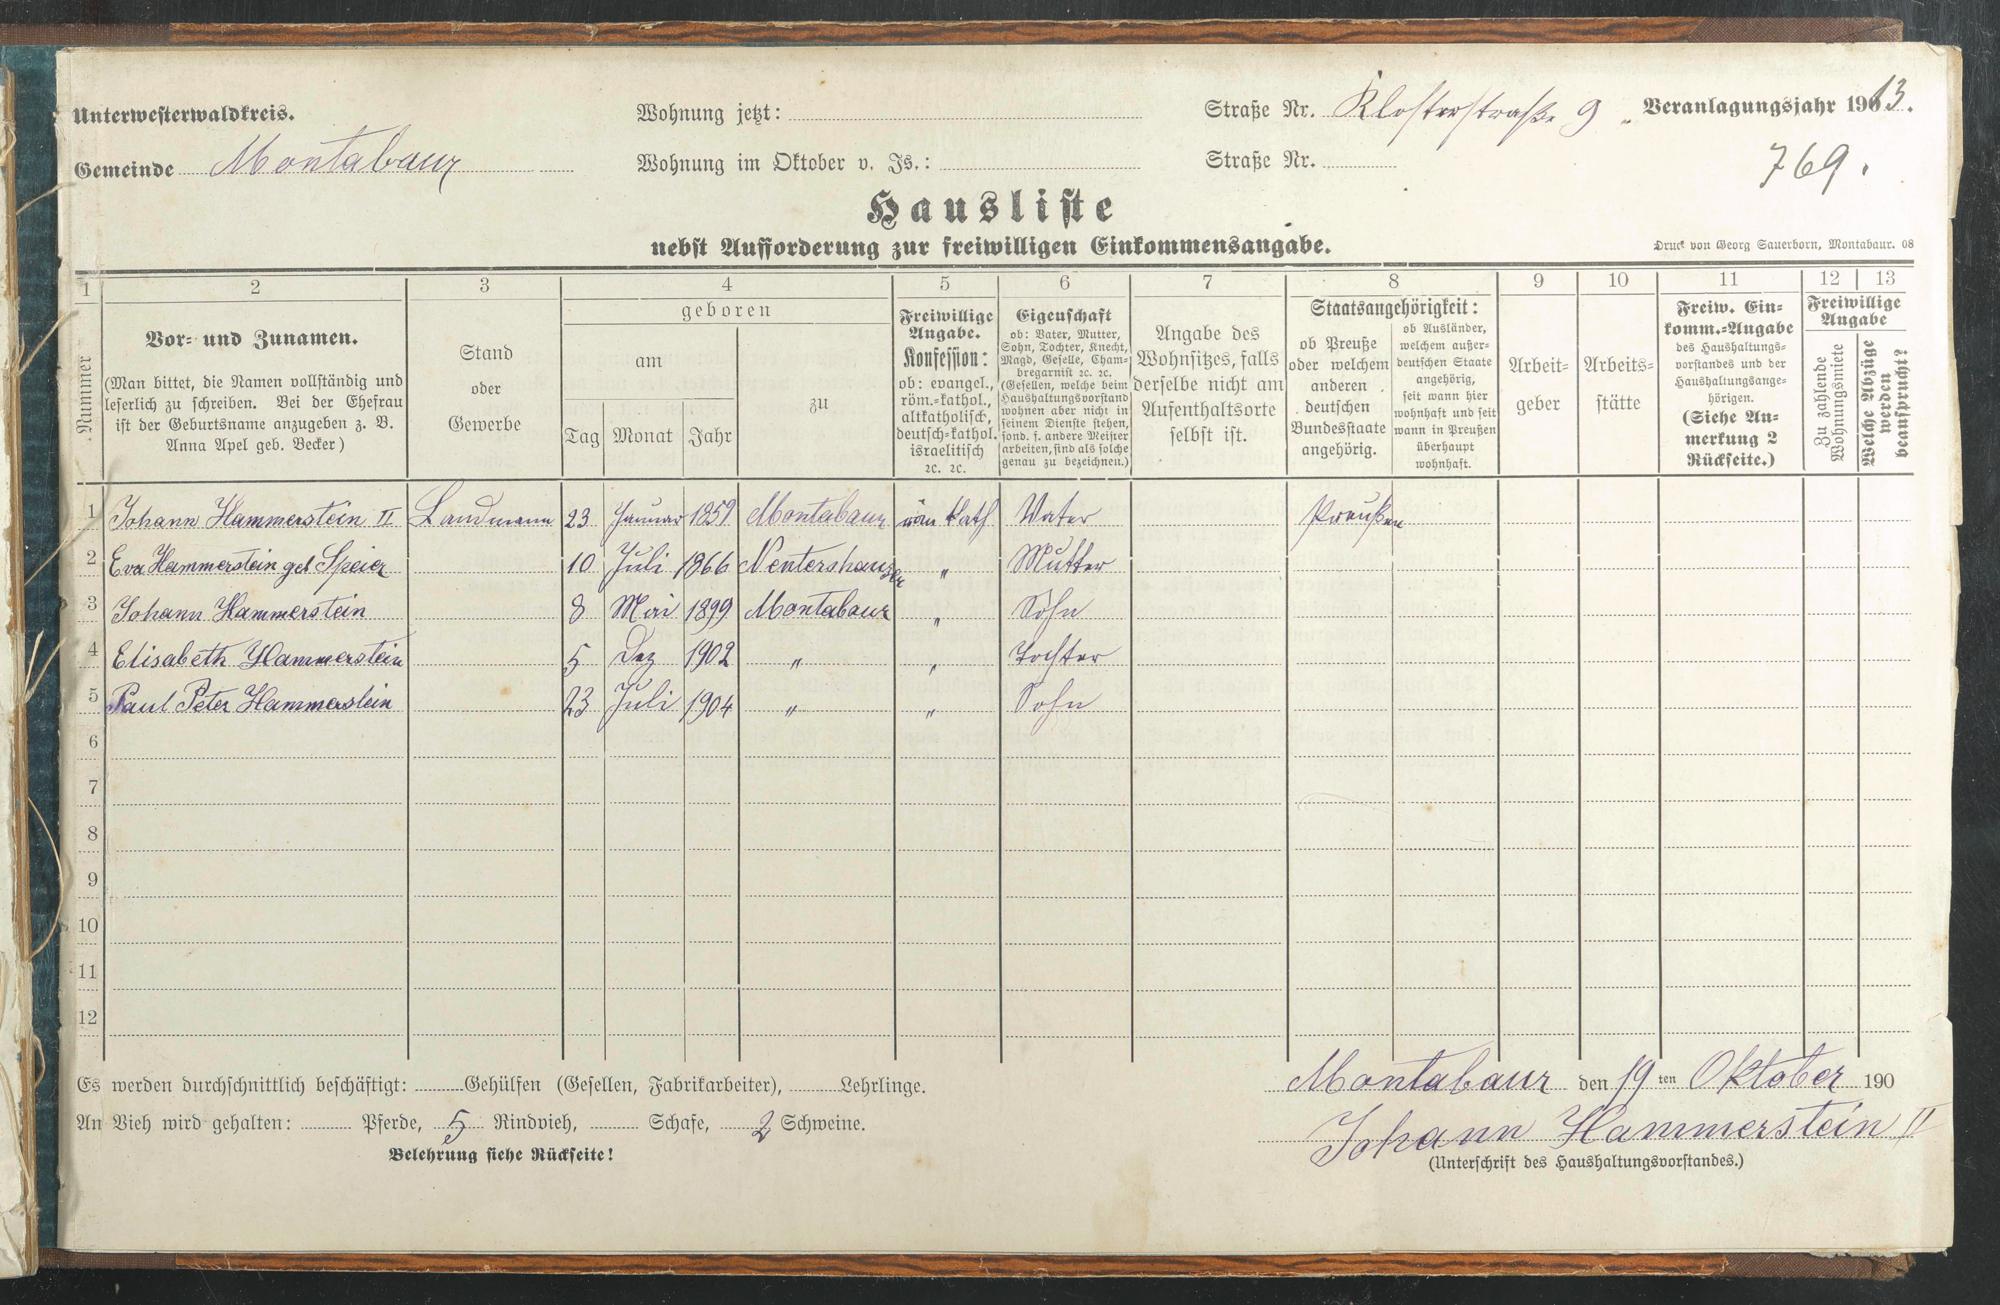 Unterwesterwaldkreis.
Wohnung jetzt:
Straße Nr. Klosterstraße 9
Veranlagungsjahr 1913.
Gemeinde Montabaur
Wohnung im Oktober v. Js.:
Straße Nr.
769.
Hausliste
nebst Aufforderung zur freiwilligen Einkommensangabe.
Druck von Georg Sauerborn, Montabaur. 08
1 2 3 4 5 6 7 8 9 10 11 12 13
Nummer
Vor- und Zunamen.
(Man bittet, die Namen vollständig und
leserlich zu schreiben. Bei der Ehefrau
ist der Geburtsname anzugeben z. B.
Anna Apel geb. Becker)
Stand
oder
Gewerbe
geboren
am
Tag Monat Jahr
zu
Freiwillige
Angabe.
Konfession:
ob: evangel.,
röm.-kathol.,
altkatholisch,
deutsch-kathol.
israelitisch
2c. 2c.
Eigenschaft
ob: Vater, Mutter,
Sohn, Tochter, Knecht,
Magd, Geselle, Cham-
bregarnist 2c. 2c.
(Gesellen, welche beim
Haushaltungsvorstand
wohnen aber nicht in
seinem Dienste stehen,
sond. f. andere Meister
arbeiten, sind als solche
genau zu bezeichnen.)
Angabe des
Wohnsitzes, falls
derselbe nicht am
Aufenthaltsorte
selbst ist.
Staatsangehörigkeit:
ob Preuße
oder welchem
anderen
deutschen
Bundesstaate
angehörig.
ob Ausländer,
welchem außer-
deutschen Staate
angehörig,
seit wann hier
wohnhaft und seit
wann in Preußen
überhaupt
wohnhaft.
Arbeit-
geber
Arbeits-
stätte
Freiw. Ein-
komm.-Angabe
des Haushaltungs-
vorstandes und der
Haushaltungsange-
hörigen.
(Siehe An-
merkung 2
Rückseite.)
Freiwillige
Angabe
Zu zahlende
Wohnungsmiete
Welche Abzüge
werden
beansprucht?
1 Johann Hammerstein II Landmann 23 Januar 1859 Montabaur röm Kath Vater Preußen
2 Eva Hammerstein geb Speier 10 Juli 1866 Nentershausen " Mutter
3 Johann Hammerstein 8 Mai 1899 Montabaur " Sohn
4 Elisabeth Hammerstein 5 Dez 1902 " " Tochter
5 Paul Peter Hammerstein 23 Juli 1904 " " Sohn
6
7
8
9
10
11
12
Es werden durchschnittlich beschäftigt: Gehülfen (Gesellen, Fabrikarbeiter), Lehrlinge.
Montabaur den 19ten Oktober 190
An Vieh wird gehalten: Pferde, 5 Rindvieh, Schafe, 2 Schweine.
Johann Hammerstein II
Belehrung siehe Rückseite!
(Unterschrift des Haushaltungsvorstandes.)